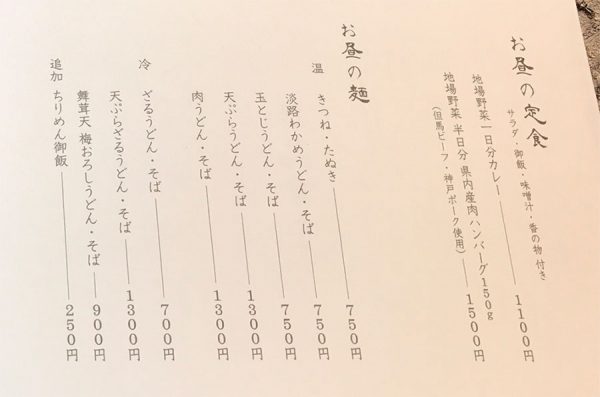 お昼の定食
サラダ・御飯・味噌汁・香の物 付き
地場野菜 一日分カレー 1100円
地場野菜 半日分 県内産肉ハンバーグ150g 1500円
(但馬ビーフ・神戸ポーク使用)
お昼の麺
温 きつね・たぬき 750円
淡路わかめうどん・そば 750円
玉とじうどん・そば 750円
天ぷらうどん・そば 1300円
肉うどん・そば 1300円
冷 ざるうどん・そば 700円
天ぷらざるうどん・そば 1300円
舞茸天 梅おろしうどん・そば 900円
追加 ちりめん御飯 250円